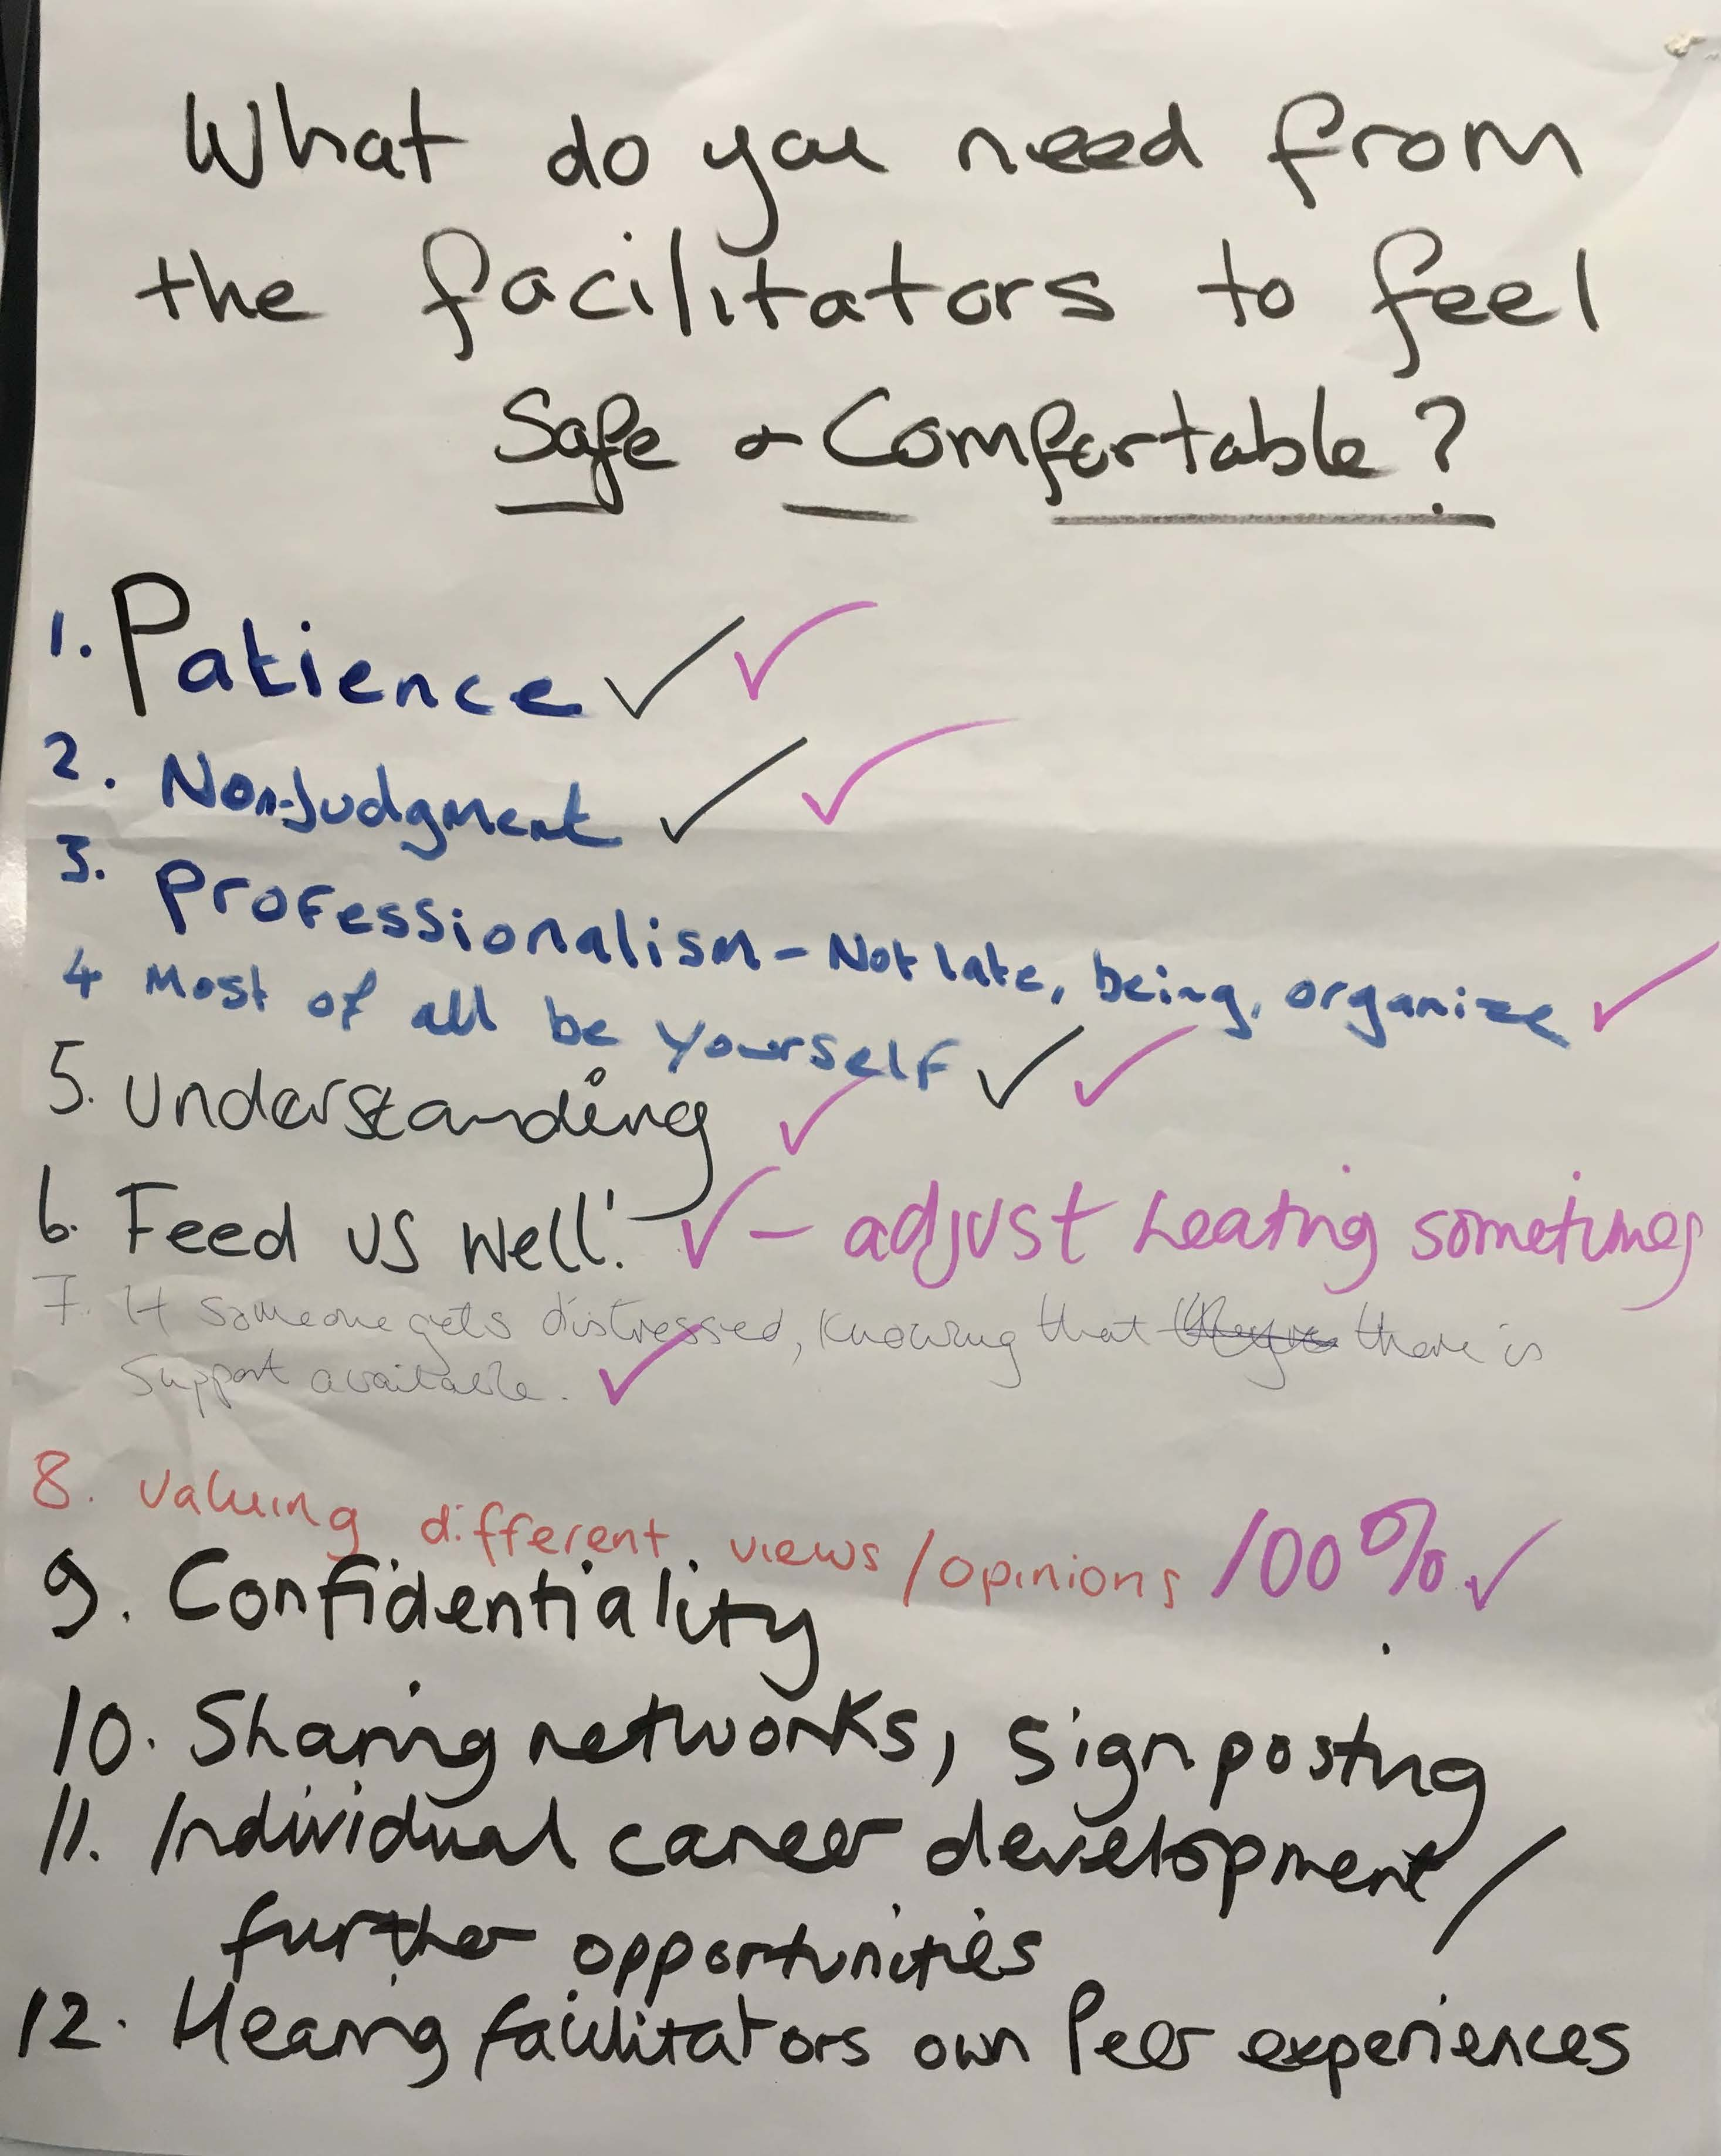 What do you need from
the facilitators to feel
Safe & Comfortable?
1. Patience ✓ ✓
2. Non-Judgment ✓ ✓
3. Professionalism - Not late, being, organize ✓
4 Most of all be yourself ✓ ✓
5. Understanding ✓
6. Feed us well! ✓ - adjust heating sometimes
7. If someone gets distressed, knowing that there is
support available. ✓
8. valuing different views / opinions 100% ✓
9. Confidentiality
10. Sharing networks, signposting
11. Individual career development /
further opportunities
12. Hearing facilitators own Peer experiences